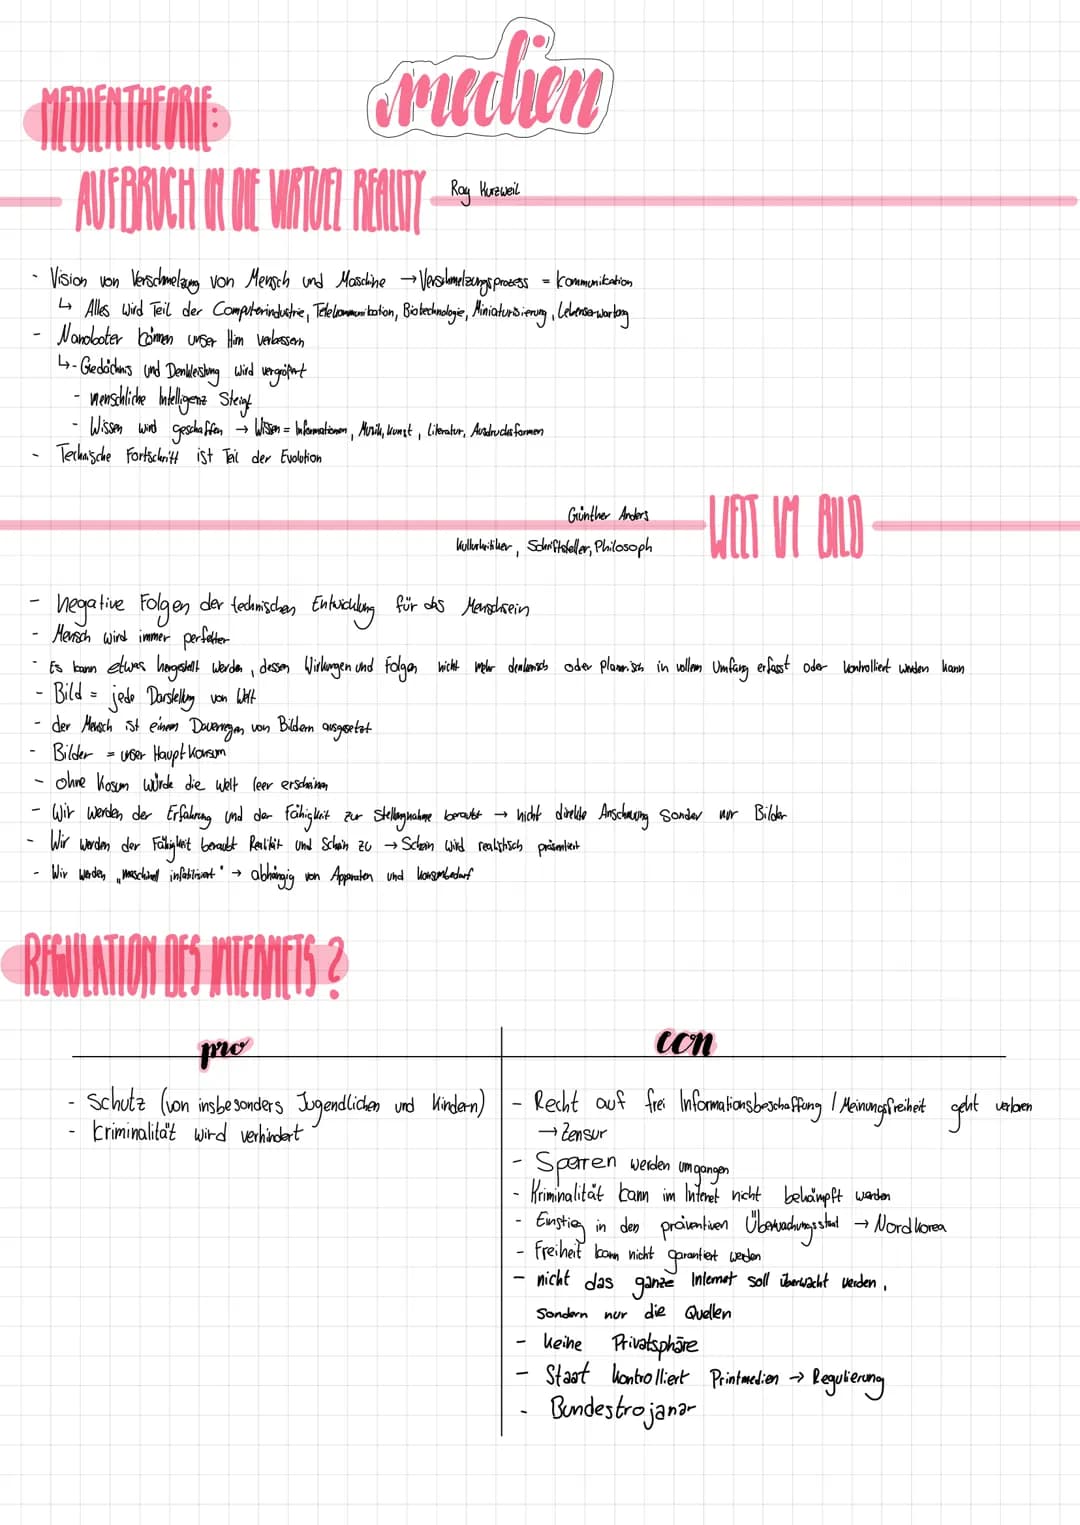 medien
MEDIENTHEORIE:
AUFBRUCH IN DIE VIRTUEL REALITY
Ray Kurzweil
- Vision von Verschmelzung von Mensch und Maschine → Verschmelzungsprozess = Kommunikation
↳ Alles wird Teil der Computerindustrie, Telekommunikation, Biotechnologie, Miniaturisierung, Lebenserwartung
- Nanoboter können unser Hirn verbessern
↳ - Gedächnis und Denkleistung wird vergrößert
- menschliche Intelligenz steigt
- Wissen wird geschaffen → Wissen = Informationen, Musik, Kunst, Literatur, Ausdrucksformen
- Technische Fortschritt ist Teil der Evolution
Günther Anders
WELT IM BILD
Kulturkritiker, Schriftsteller, Philosoph
- negative Folgen der technischen Entwicklung für das Menschsein
- Mensch wird immer perfekter
- Es kann etwas hergestellt werden, dessen Wirkungen und Folgen nicht mehr denkerisch oder planerisch in vollem Umfang erfasst oder kontrolliert werden kann
- Bild = jede Darstellung von Welt
- der Mensch ist einem Dauerregen von Bildern ausgesetzt
- Bilder = unser Hauptkonsum
- ohne Kosum würde die Welt leer erscheinen
- Wir werden der Erfahrung und der Fähigkeit zur Stellungnahme beraubt → nicht direkte Anschauung sonder nur Bilder
- Wir werden der Fähigkeit beraubt Realität und Schein zu → Schein wird realistisch präsentiert
- Wir werden „maschinell infantilisiert" → abhängig von Apparaten und Konsumbedarf
REGULATION DES INTERNETS?
pro
con
- Schutz (von insbesonders Jugendlichen und Kindern)
- Kriminalität wird verhindert
- Recht auf frei Informationsbeschaffung / Meinungsfreiheit geht verloren
→ Zensur
- Sperren werden umgangen
- Kriminalität kann im Interet nicht bekämpft werden
- Einstieg in den präventiven Überwachungsstaat → Nordkorea
- Freiheit kann nicht garantiert werden
- nicht das ganze Internet soll überwacht werden,
sondern nur die Quellen
- keine Privatsphäre
- Staat kontrolliert Printmedien → Regulierung
- Bundestrojaner